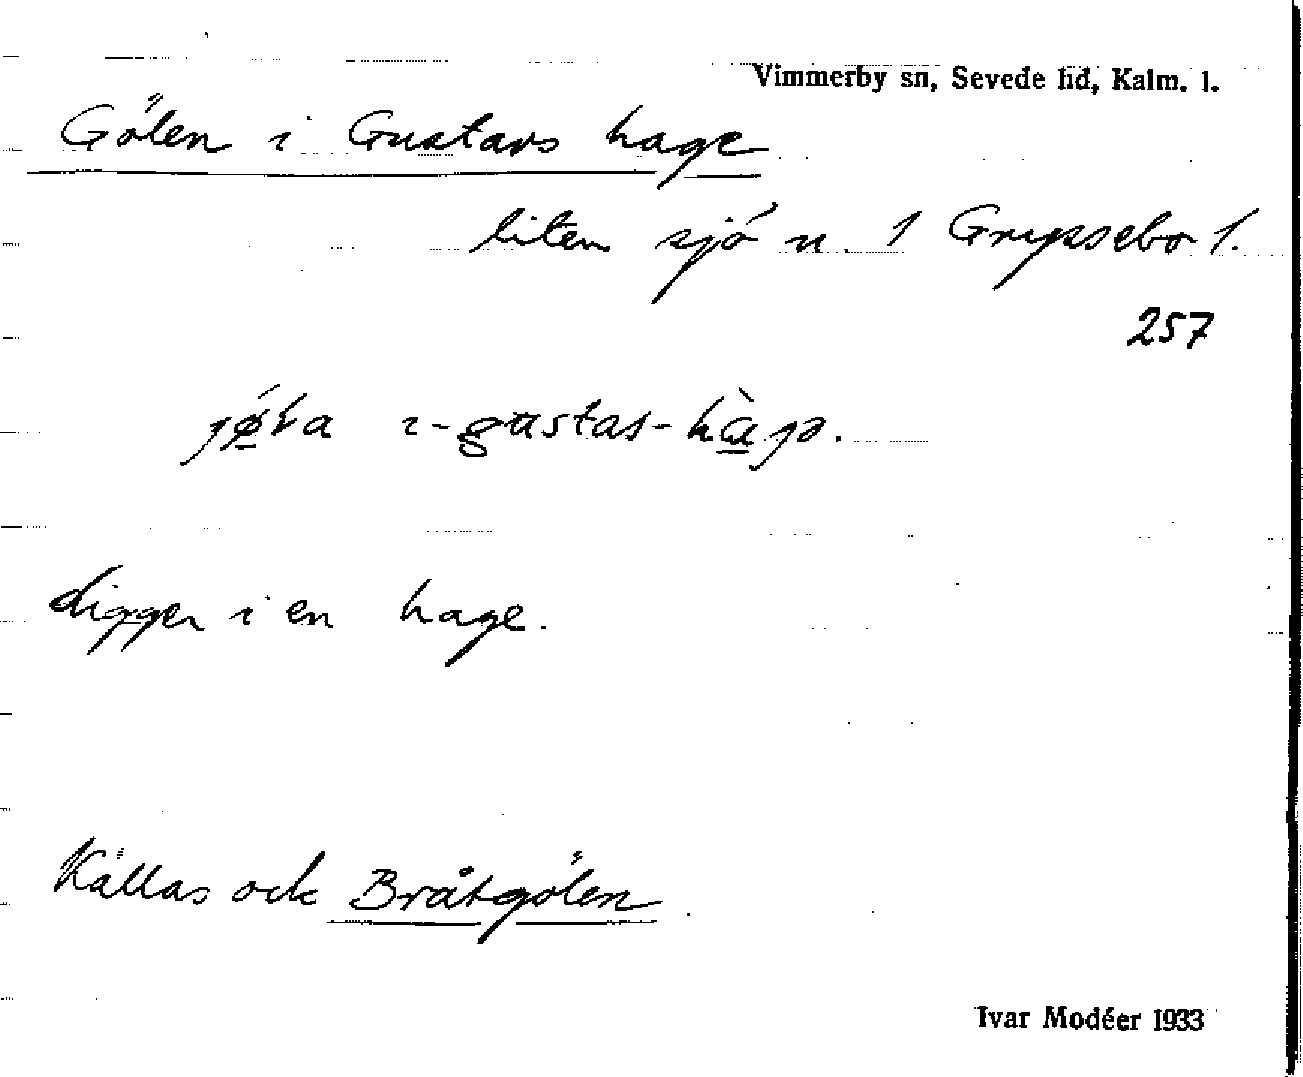 Vimmerby sn, Sevede hd, Kalm. l.
Gölen i Gustavs hage
liten sjö n. 1 Grypsebo 1.
257
jø̀ɫa ı-gustas-hàgə.
Ligger i en hage.
Kallas ock Bråtgölen
Ivar Modéer 1933